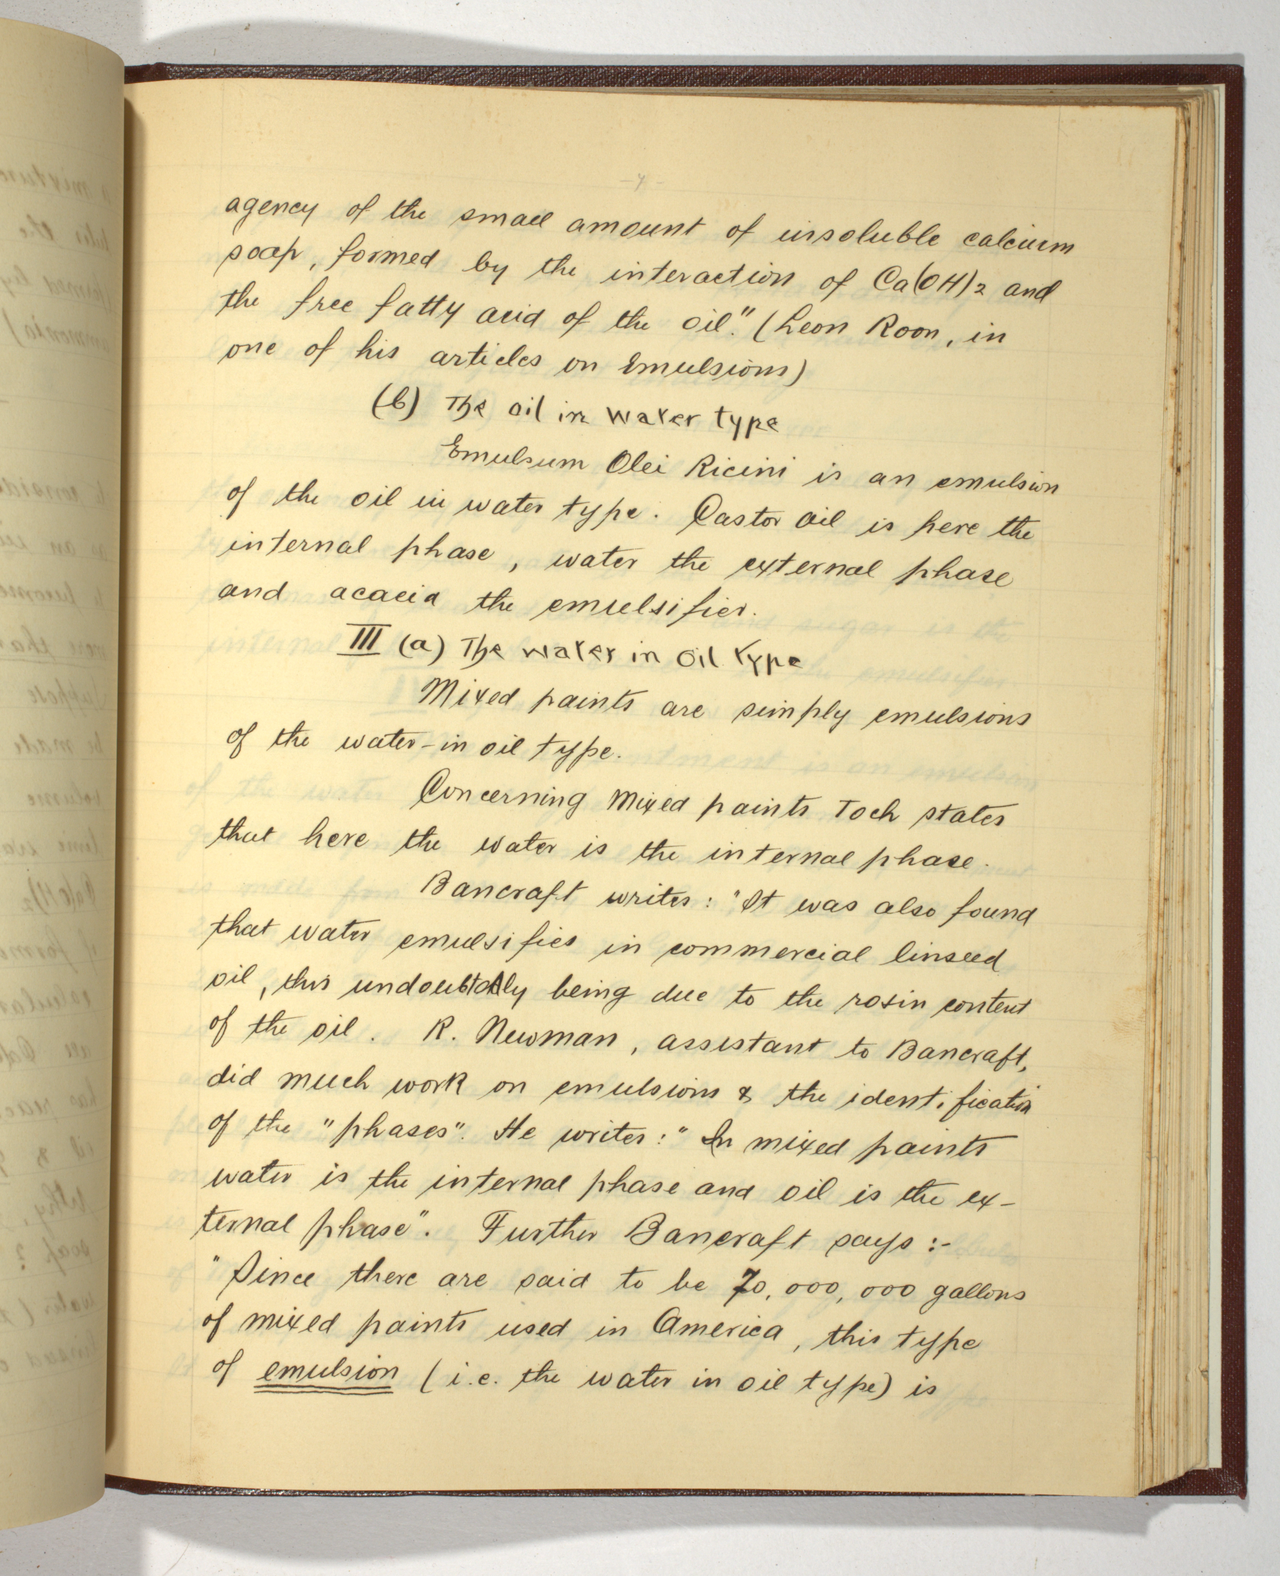 -7-
agency of the small amount of insoluble calcium
soap, formed by the interaction of Ca(OH)2 and
the free fatty acid of the oil." (Leon Roon, in
one of his articles on Emulsions)
(b) The oil in water type
Emulsum Olei Ricini is an emulsion
of the oil in water type. Castor oil is here the
internal phase, water the external phase
and acacia the emulsifier.
III (a) The water in oil type
Mixed paints are simply emulsions
of the water-in oil type.
Concerning mixed paints Toch states
that here the water is the internal phase.
Bancraft writes: "It was also found
that water emulsifies in commercial linseed
oil, this undoubtedly being due to the rosin content
of the oil. R. Newman, assistant to Bancraft,
did much work on emulsions & the identification
of the "phases". He writes: "In mixed paints
water is the internal phase and oil is the ex-
ternal phase". Further Bancraft says:-
"Since there are said to be 70,000,000 gallons
of mixed paints used in America, this type
of emulsion (i.e. the water in oil type) is